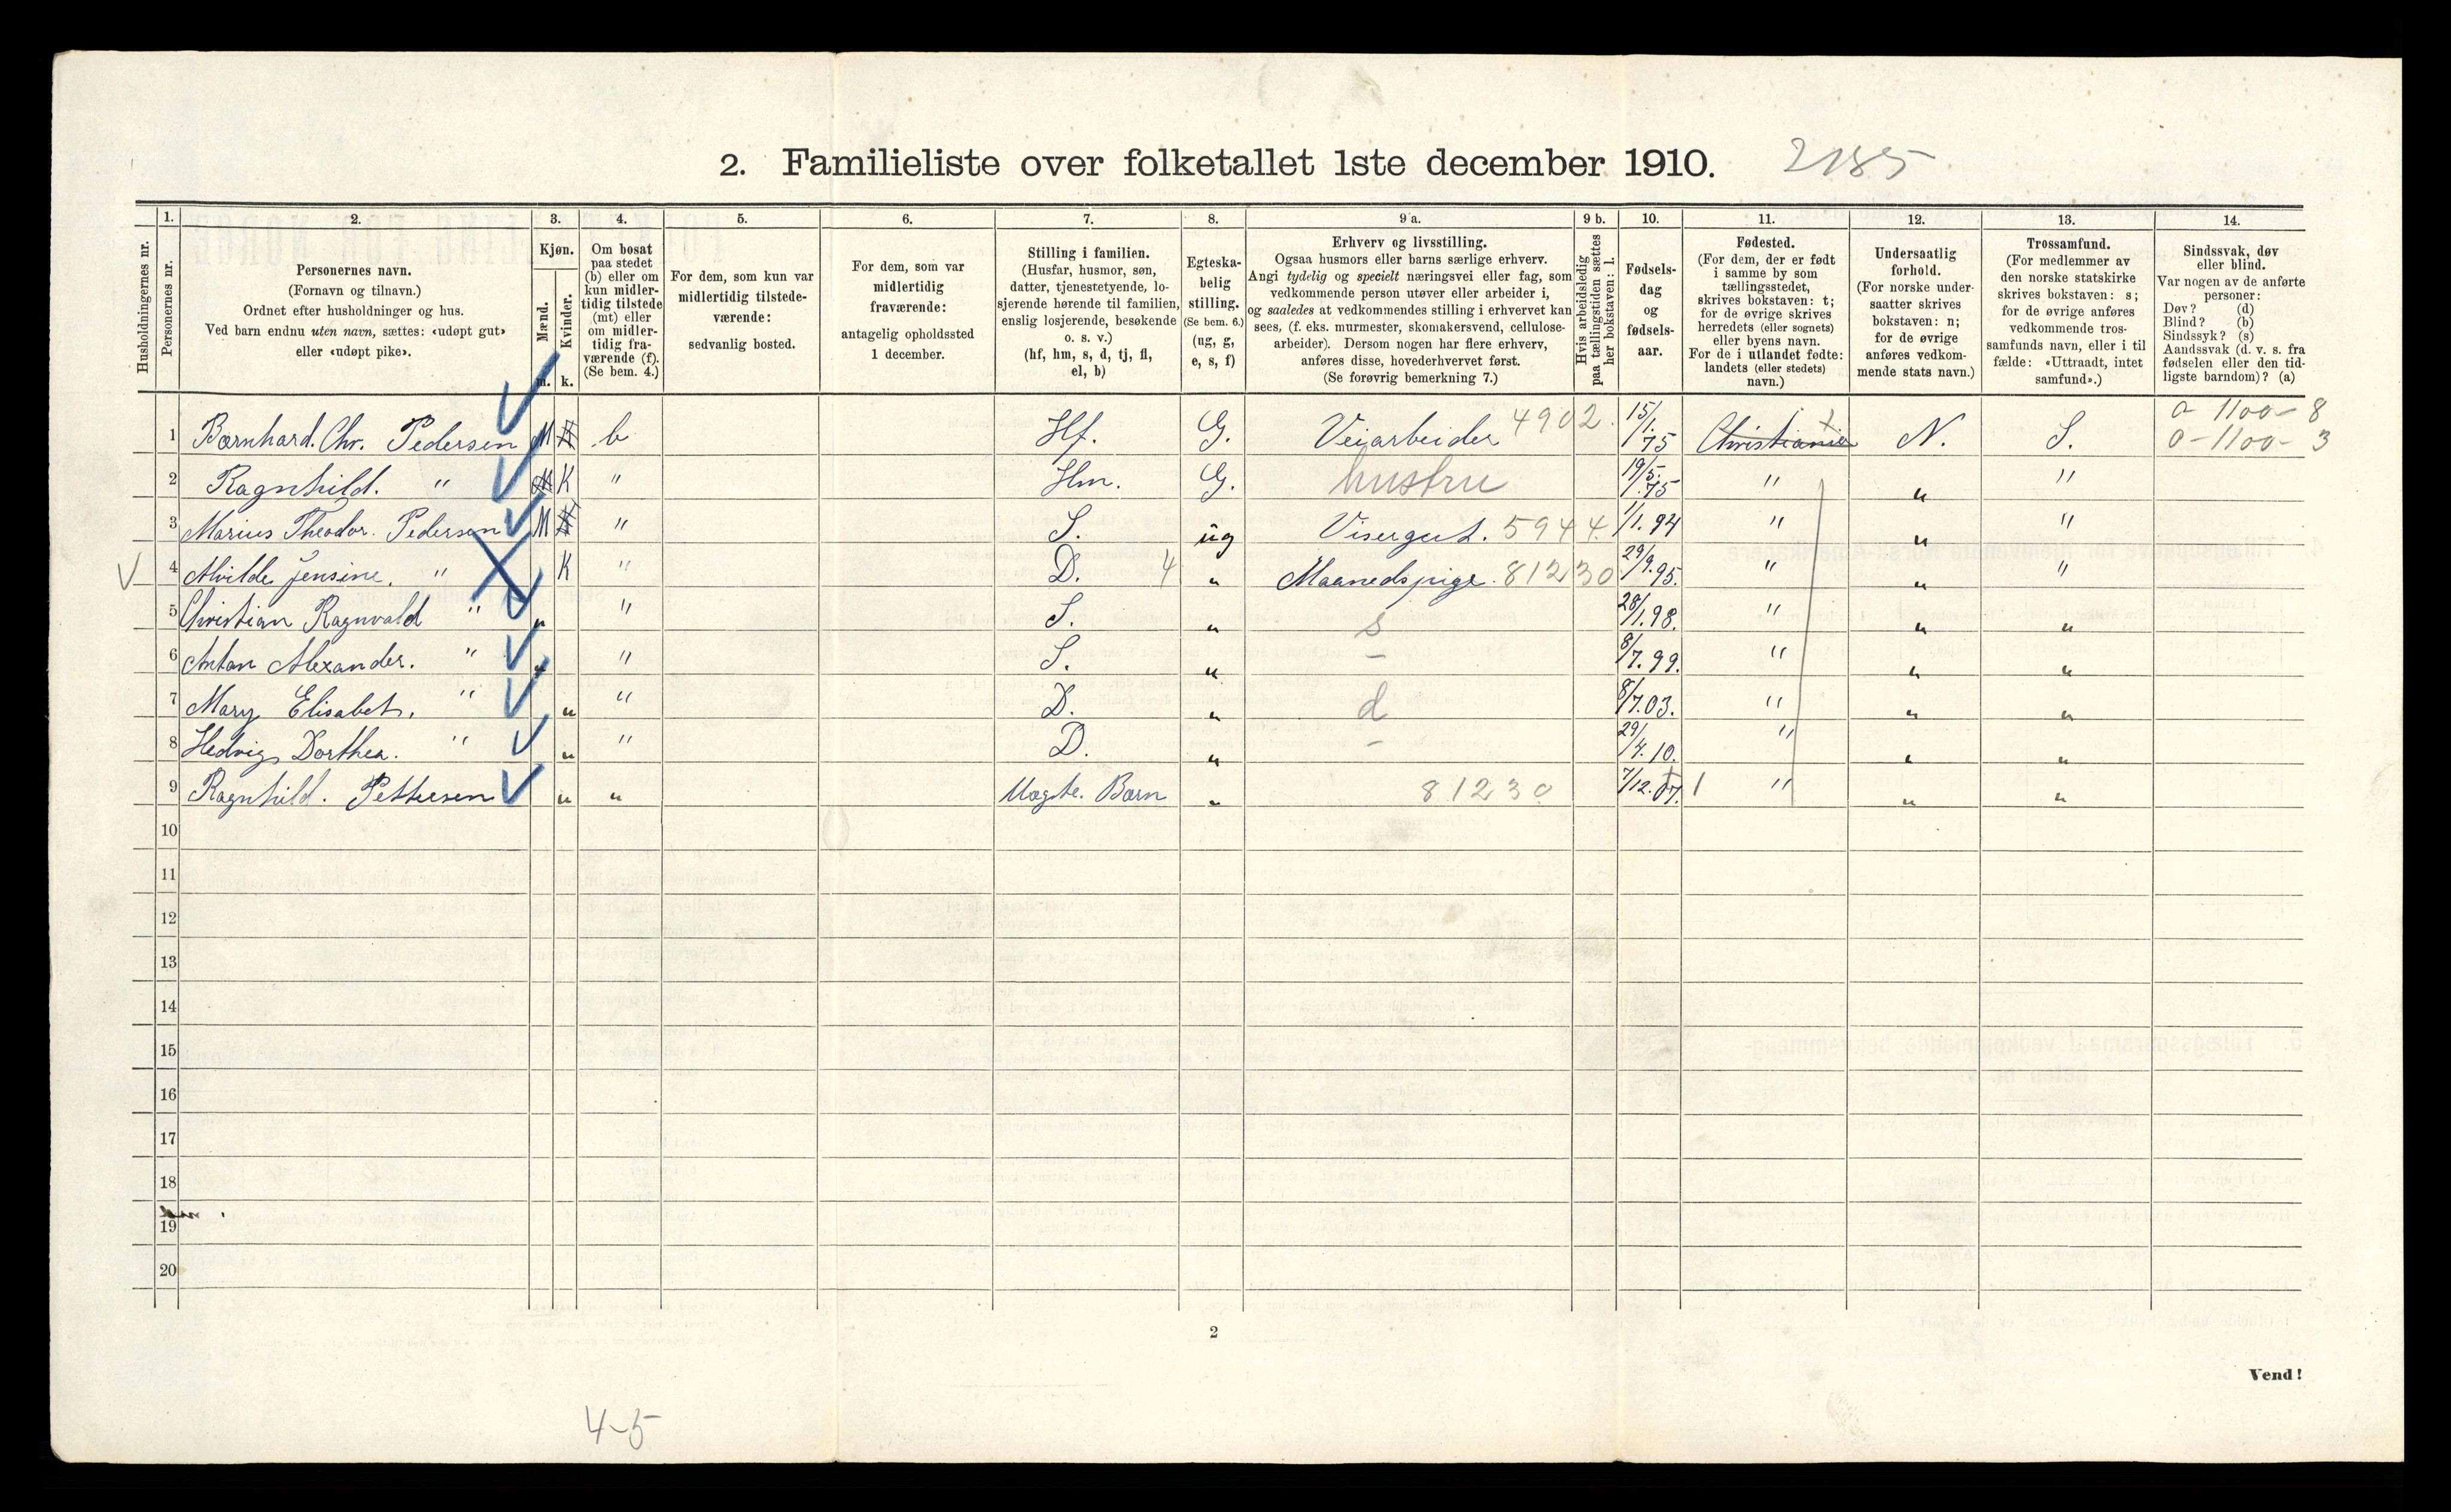 2. Familieliste over folketallet 1ste december 1910. 2185
Husholdningernes nr.
1. Personernes nr.
2. Personernes navn. (Fornavn og tilnavn.) Ordnet efter husholdninger og hus. Ved barn endnu uten navn, sættes: «udøpt gut» eller «udøpt pike».
3. Kjøn. Mænd. m. Kvinder. k.
4. Om bosat paa stedet (b) eller om kun midlertidig tilstede (mt) eller om midlertidig fraværende (f). (Se bem. 4.)
5. For dem, som kun var midlertidig tilstedeværende: sedvanlig bosted.
6. For dem, som var midlertidig fraværende: antagelig opholdssted 1 december.
7. Stilling i familien. (Husfar, husmor, søn, datter, tjenestetyende, losjerende hørende til familien, enslig losjerende, besøkende o. s. v.) (hf, hm, s, d, tj, fl, el, b)
8. Egteskabelig stilling. (Se bem. 6.) (ug, g, e, s, f)
9 a. Erhverv og livsstilling. Ogsaa husmors eller barns særlige erhverv. Angi tydelig og specielt næringsvei eller fag, som vedkommende person utøver eller arbeider i, og saaledes at vedkommendes stilling i erhvervet kan sees, (f. eks. murmester, skomakersvend, cellulosearbeider). Dersom nogen har flere erhverv, anføres disse, hovederhvervet først. (Se forøvrig bemerkning 7.)
9 b. Hvis arbeidsledig paa tællingstiden sættes her bokstaven: l.
10. Fødselsdag og fødselsaar.
11. Fødested. (For dem, der er født i samme by som tællingsstedet, skrives bokstaven: t; for de øvrige skrives herredets (eller sognets) eller byens navn. For de i utlandet fødte: landets (eller stedets) navn.)
12. Undersaatlig forhold. (For norske undersaatter skrives bokstaven: n; for de øvrige anføres vedkommende stats navn.)
13. Trossamfund. (For medlemmer av den norske statskirke skrives bokstaven: s; for de øvrige anføres vedkommende trossamfunds navn, eller i tilfælde: «Uttraadt, intet samfund».)
14. Sindssvak, døv eller blind. Var nogen av de anførte personer: Døv? (d) Blind? (b) Sindssyk? (s) Aandssvak (d. v. s. fra fødselen eller den tidligste barndom)? (a)
1 Bernhard. Chr. Pedersen M K b Hf. G. Veiarbeider 4902. 15/1. 75 Christiania t N. S. 0-1100-8 0-1100-3
2 Ragnhild. " M K " Hm. G. hustru 19/5. 75 " " "
3 Marius Theodor. Pedersen M K " S. ug Visergut. 5944. 1/1. 94 " " "
4 Alvilde Jensine. " K " D. 4 " Maanedspige. 81230 29/9. 95. " " "
5 Christian Ragnvald " " " S. " s 28/1. 98. " " "
6 Anton Alexander. " " " S. " – 8/7. 99. " " "
7 Mary Elisabet. " " " D. " d 8/7. 03. " " "
8 Hedvig Dorthea. " " " D. " – 29/4. 10. " " "
9 Ragnhild. Pettersen " " Barn " 81230 7/12. 07. 1 " " "
10
11
12
13
14
15
16
17
18
19
20
2
Vend!
4-5